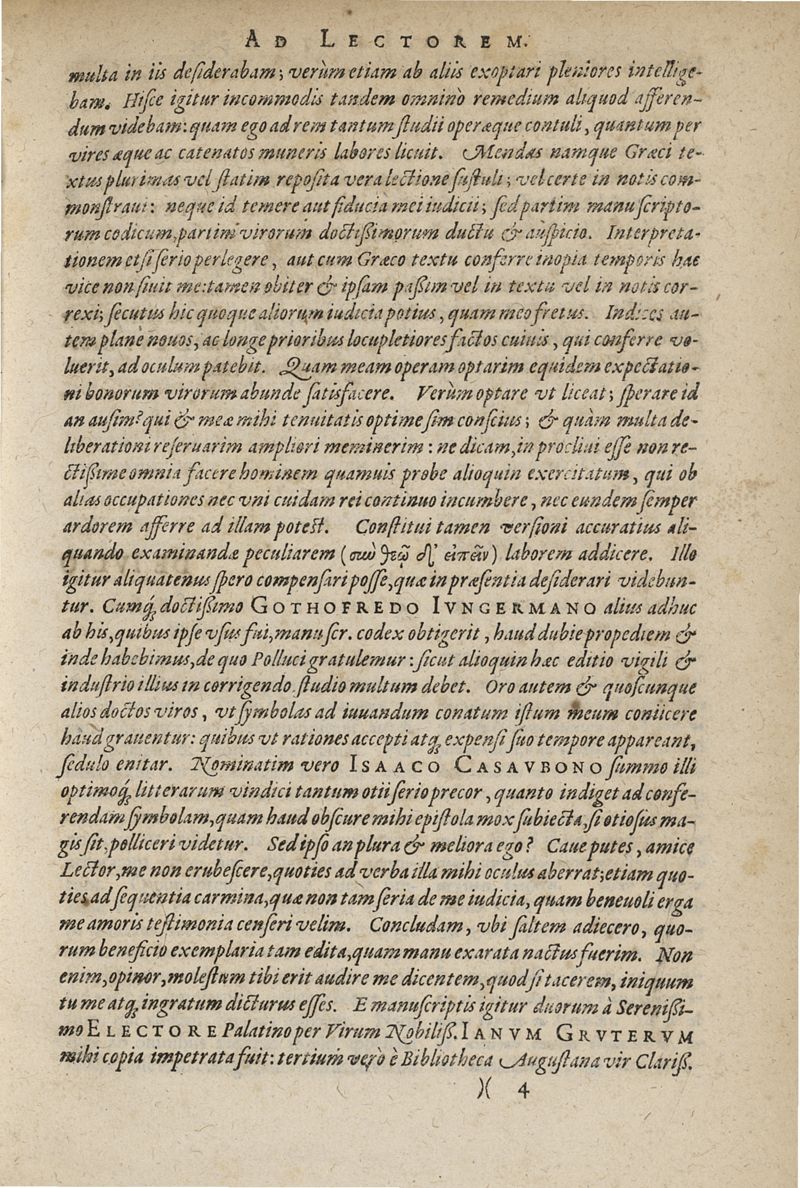 AD LECTOREM.
multa in iis deſiderabam; verùm etiam ab aliis exoptari pleniores intellige-
bam. Hiſce igitur incommodis tandem omnino remedium aliquod afferen-
dum videbam: quam ego ad rem tantum ſtudii operæque contuli, quantum per
vires æque ac catenatos muneris labores licuit. Mendas namque Græci te-
xtus plurimas vel ſtatim repoſita vera lectione ſuſtuli; vel certe in notis com-
monſtraui: neque id temere aut fiducia mei iudicii; ſed partim manuſcripto-
rum codicum, partim virorum doctiſſimorum ductu & auſpicio. Interpreta-
tionem etſi ſerio perlegere, aut cum Græco textu conferre inopia temporis hac
vice non ſiuit me: tamen obiter & ipſam paſſim vel in textu vel in notis cor-
rexi; ſecutus hic quoque aliorum iudicia potius, quam meo fretus. Indices au-
tem planè nouos, ac longe prioribus locupletiores factos cuiuis, qui conferre vo-
luerit, ad oculum patebit. Quam meam operam optarim equidem expectatio-
ni bonorum virorum abunde ſatisfacere. Verùm optare vt liceat; ſperare id
an auſim? qui & meæ mihi tenuitatis optime ſim conſcius; & quàm multa de-
liberationi reſeruarim ampliori meminerim: ne dicam, in procliui eſſe non re-
ctiſſime omnia facere hominem quamuis probe alioquin exercitatum, qui ob
alias occupationes nec vni cuidam rei continuo incumbere, nec eundem ſemper
ardorem afferre ad illam poteſt. Conſtitui tamen verſioni accuratius ali-
quando examinandæ peculiarem (σιωὼ θεῷ δ' εἰπεῖν) laborem addicere. Illo
igitur aliquatenus ſpero compenſari poſſe, quæ in præſentia deſiderari videbun-
tur. Cumq́; doctiſſimo GOTHOFREDO IVNGERMANO alius adhuc
ab his, quibus ipſe vſus fui, manuſcr. codex obtigerit, haud dubie propediem &
inde habebimus, de quo Polluci gratulemur: ſicut alioquin hæc editio vigili &
induſtrio illius in corrigendo ſtudio multum debet. Oro autem & quoſcunque
alios doctos viros, vt ſymbolas ad iuuandum conatum iſtum meum coniicere
haud grauentur: quibus vt rationes accepti atq; expenſi ſuo tempore appareant,
ſedulo enitar. Nominatim vero ISAACO CASAVBONO ſummo illi
optimoq́; litterarum vindici tantum otii ſerio precor, quanto indiget ad confe-
rendam ſymbolam, quam haud obſcure mihi epiſtola mox ſubiecta, ſi otioſus ma-
gis ſit, polliceri videtur. Sed ipſo an plura & meliora ego? Caue putes, amice
Lector, me non erubeſcere, quoties ad verba illa mihi oculus aberrat; etiam quo-
ties ad ſequentia carmina, quæ non tam ſeria de me iudicia, quam beneuoli erga
me amoris teſtimonia cenſeri velim. Concludam, vbi ſaltem adiecero, quo-
rum beneficio exemplaria tam edita, quam manu exarata nactus fuerim. Non
enim, opinor, moleſtum tibi erit audire me dicentem, quod ſi tacerem, iniquum
tu me atq; ingratum dicturus eſſes. E manuſcriptis igitur duorum à Sereniſſi-
mo ELECTORE Palatino per Virum Nobiliſſ. IANVM GRVTERVM
mihi copia impetrata fuit: tertium vero è Bibliotheca Auguſtana vir Clariſſ.
)( 4